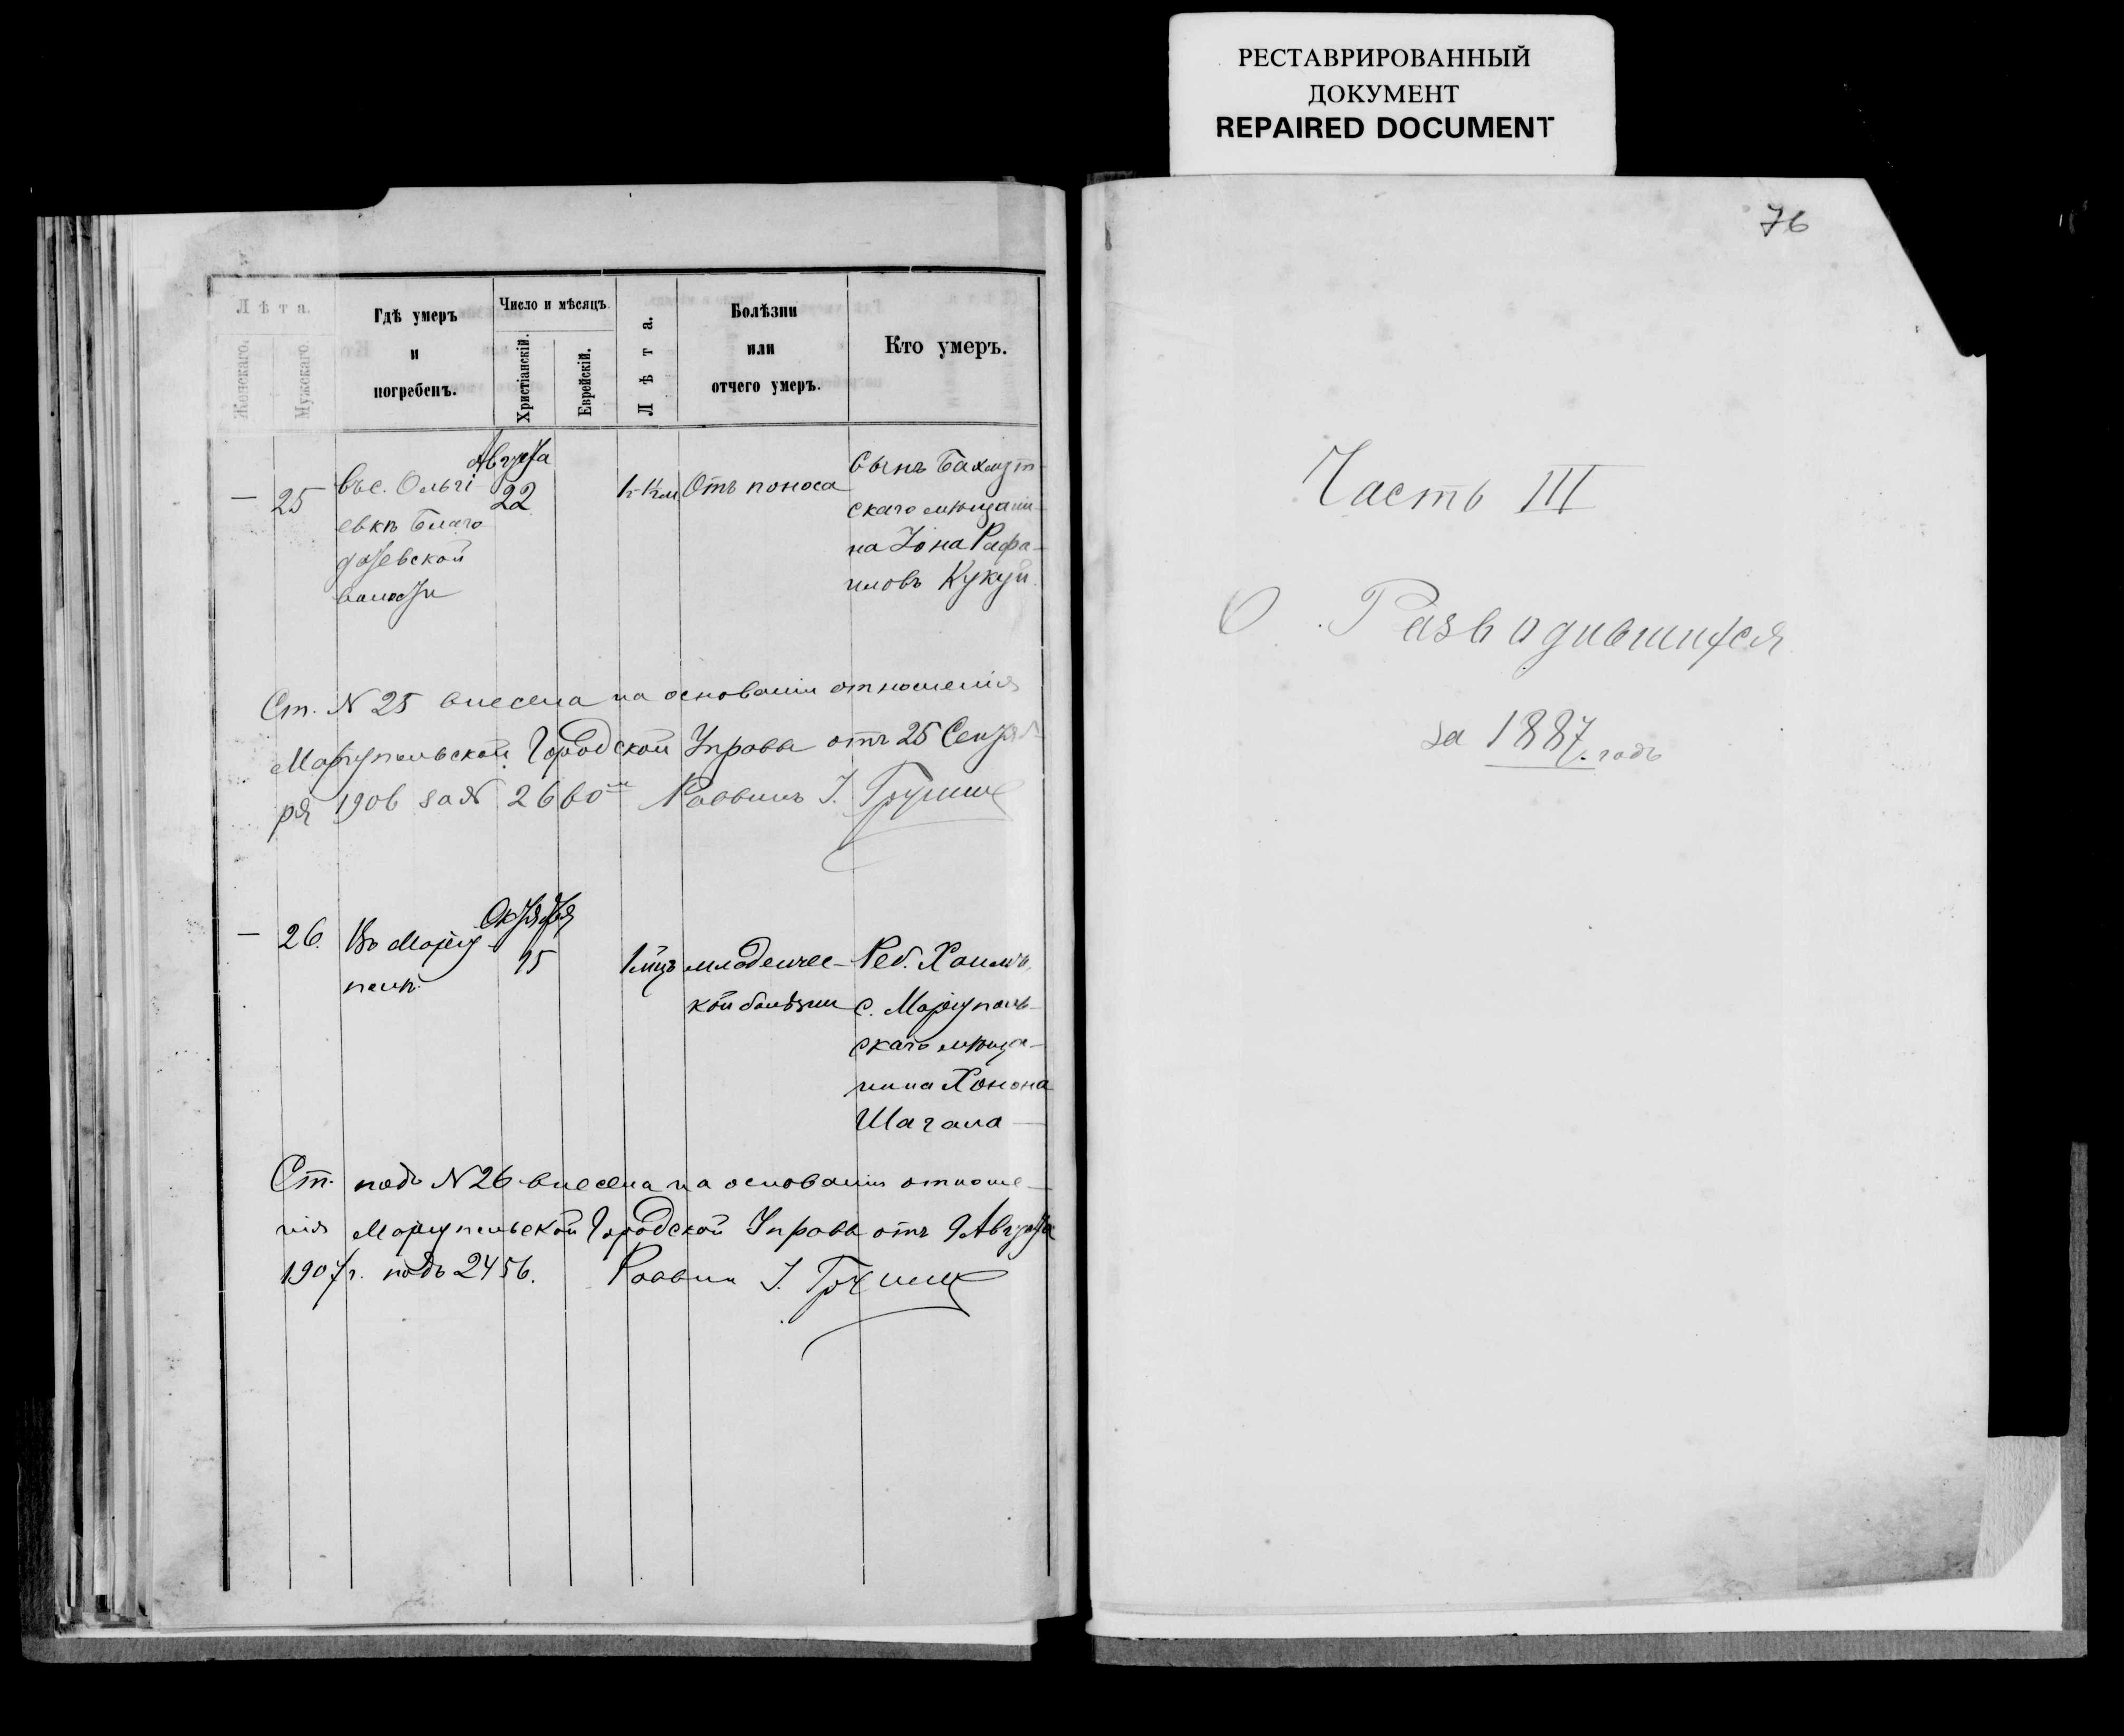 РЕСТАВРИРОВАННЫЙ
ДОКУМЕНТ
REPAIRED DOCUMENT
76
Лѣта.
Женскаго.
Мужскаго.
Гдѣ умеръ
и
погребенъ.
Число и мѣсяцъ.
Христіанскій.
Еврейскій.
Лѣта.
Болѣзни
или
отчего умеръ.
Кто умеръ.
— 25
Въ с. Ольгі
евкѣ Благо
датевской
волости
Августа
22
Отъ поноса
Сынъ Бахмут-
скаго мѣщани-
на Іона Рафа-
иловъ Кукуй.
Ст. № 25 внесена на основаніи отношенія
Маріупольской Городской Управы отъ 25 Сентяб
ря 1906 за № 2660 Раввинъ І.
— 26.
Въ Маріу-
полѣ
Октября
15
1 мцъ
младенчес-
кой болѣзни
Реб. Хаимъ,
с. Маріуполь-
скаго мѣща-
нина Хонона
Шагала —
Ст. подъ № 26 внесена на основаніи отноше-
нія Маріупольской Городской Управы отъ 9 Августа
1907 г. подъ 2456. Раввин І.
Часть III
О Разводившихся
за 1887 годъ